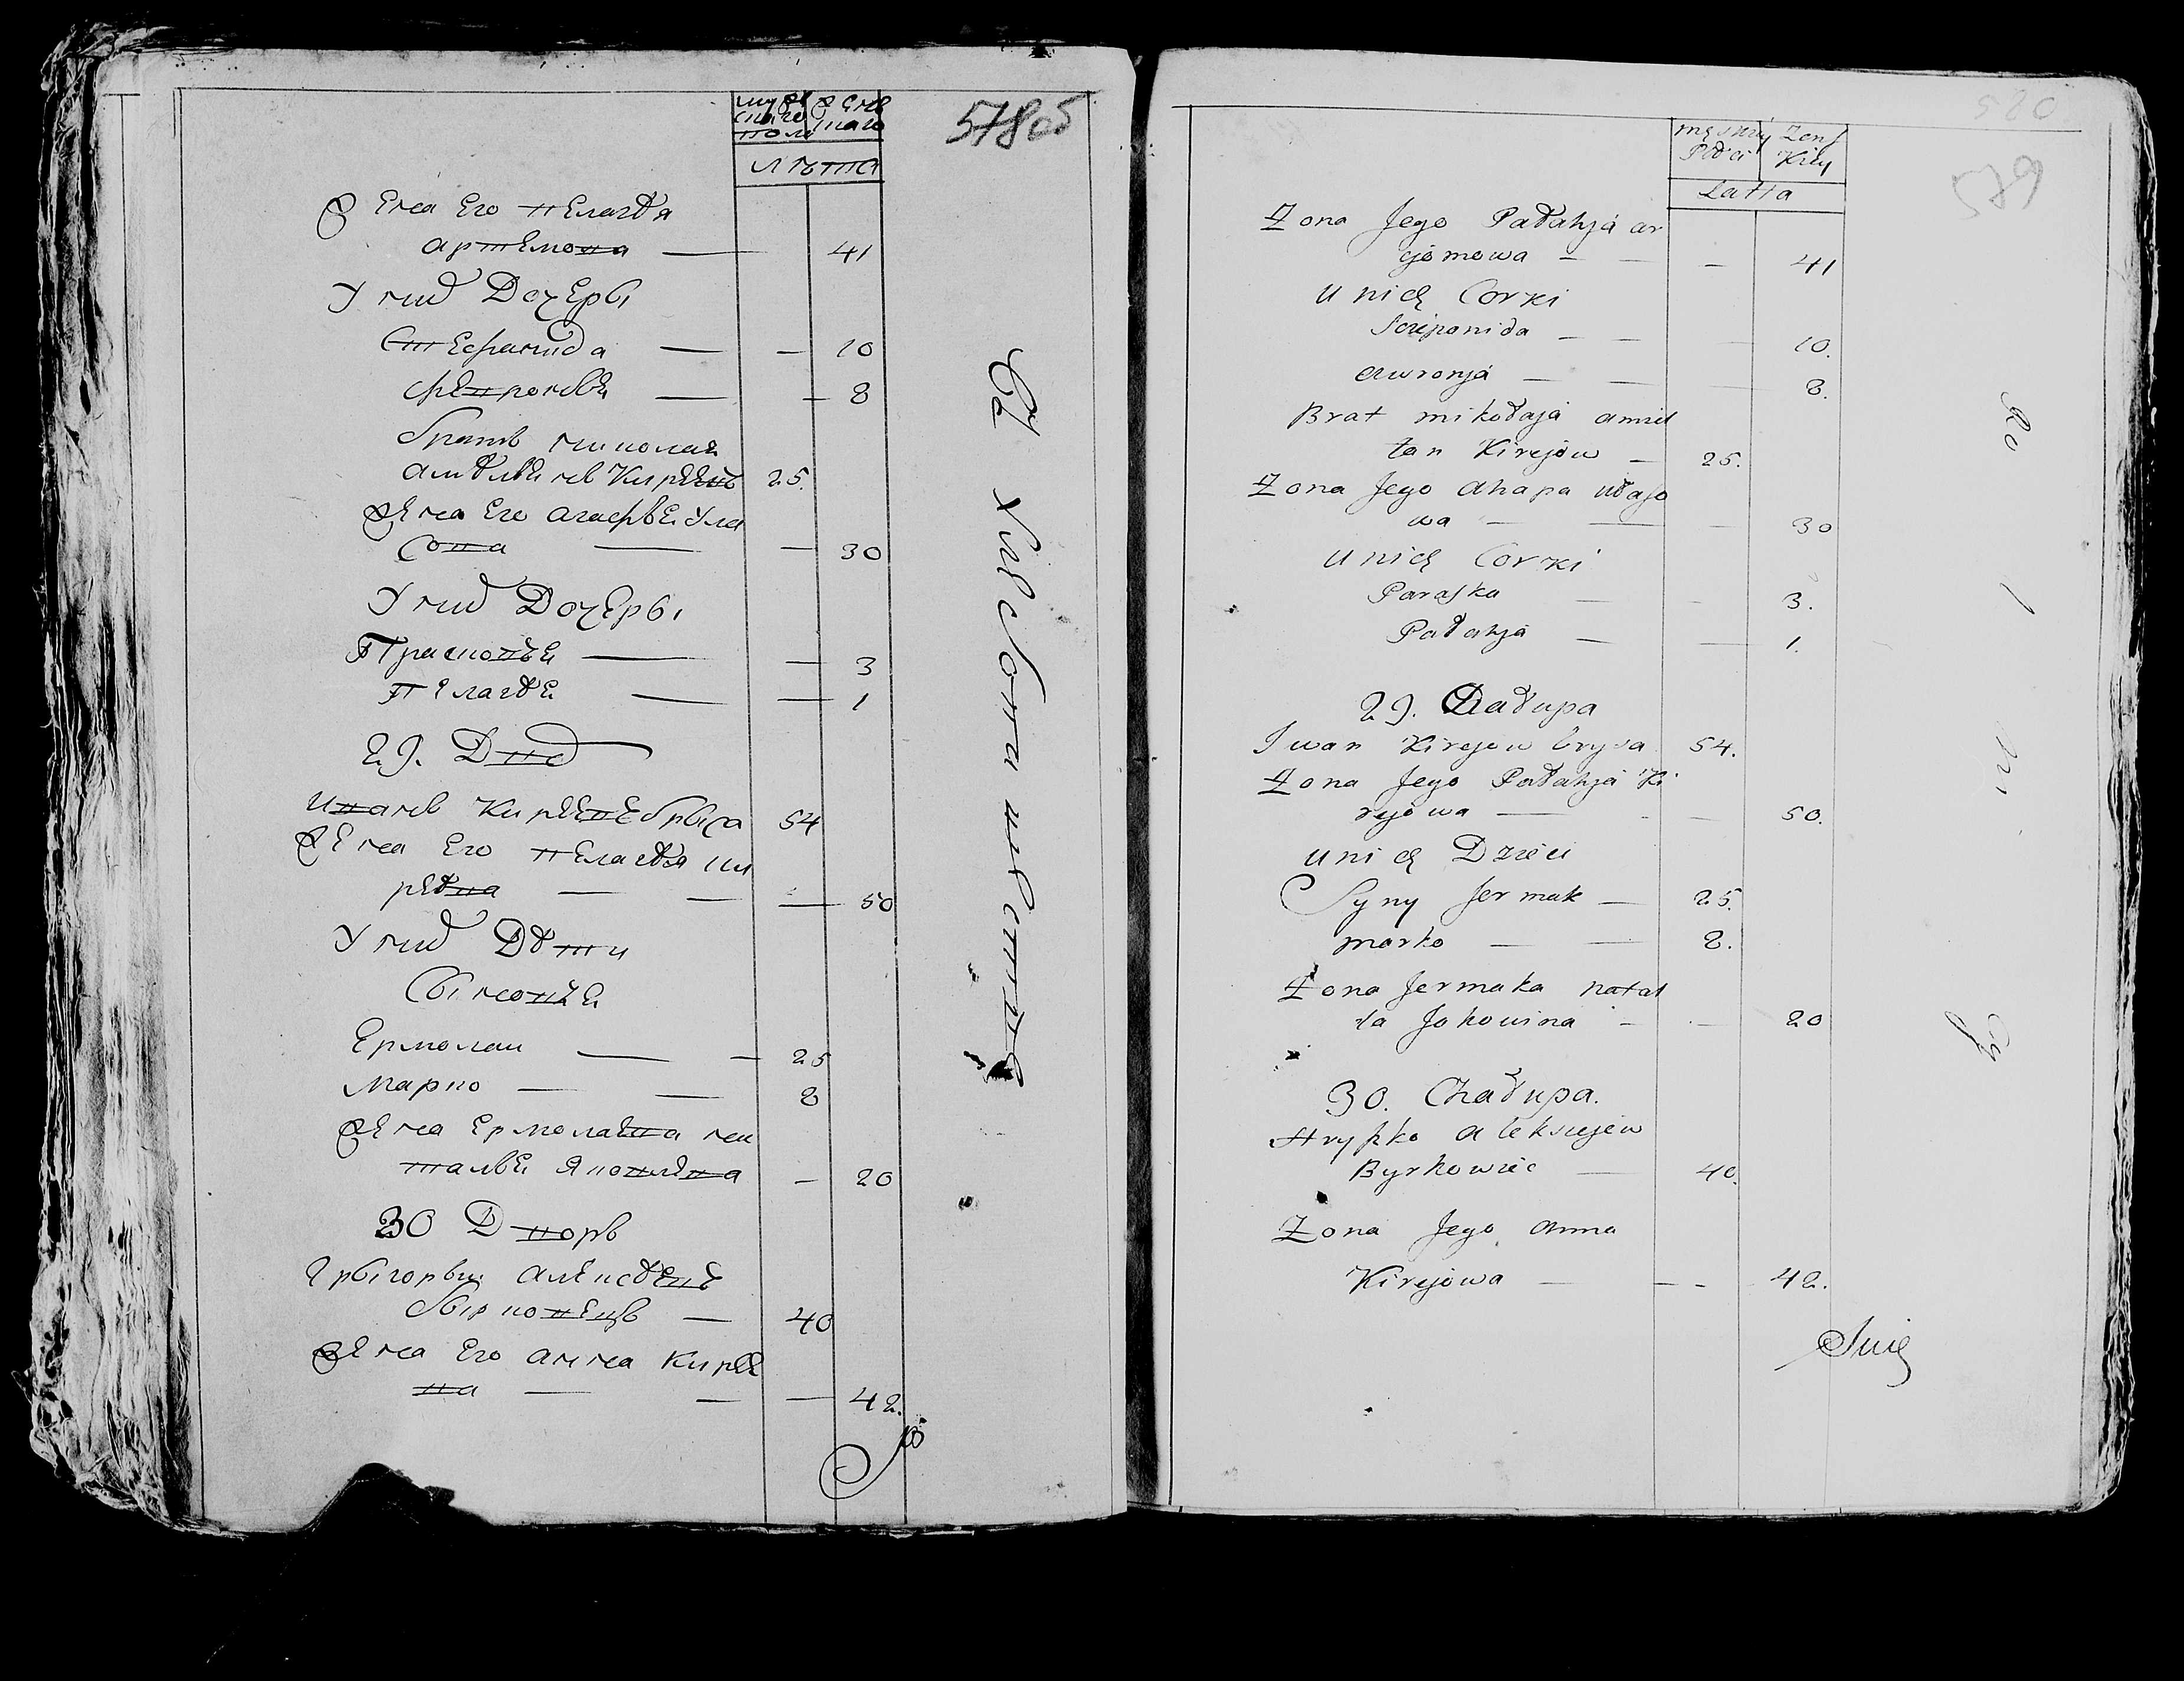 мужескаго пола
женскаго
лѣта
578 об
Жена Его Пелагѣя
Артемова 41
У нихъ Дочеры
Степанида 10
Февронѣя 8
братъ николая
Амѣлѣянъ Кирѣевъ 25.
Жена Его Агафѣя Ула
сова 30
У нихъ Дочеры
Прасковѣя 3
Пелагѣя 1
29. Дво
Иванъ Кирѣевъ Брыса 54
Жена Его Пелагѣя Ки
рѣева 50
У нихъ Дѣти
Сыновѣя
Ермолай 25
Марко 8
Жена Ермолаева на
талѣя Яковлева 20
30 Дворъ
Грыгорый Алексѣевъ
бырковецъ 40
Жена Его Анна Кирѣе
ва 42.
579
męskiey Płci
Żeńskiey
Latta
Żona Jego Pałahja ar
cjomowa 41
u nich Corki
Sciepanida 10.
Awronja 8.
Brat mikołaja amiel
lan Kirejow 25.
Żona Jego Ahapa ułaso
wa 30
u nich Corki
Paraska 3.
Pałahja 1.
29. Chałupa
Iwan Kirejow brysa 54.
Żona Jego Pałahja Ki
rejowa 50.
u nich Dzieci
Syny Jermak 25.
marko 8.
Żona Jermaka natal
la Jakowina 20
30. Chałupa.
Hryszko aleksiejew
Byrkowiec 40.
Żona Jego anna
Kirejowa 42.